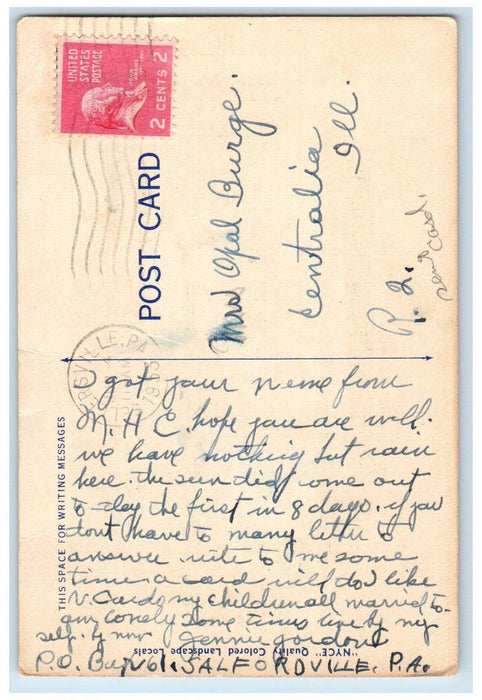 UNITED
STATES
POSTAGE
JOHN
ADAMS
2 CENTS 2
POST CARD
Mrs Opal Burge.
Centralia
Ill.
R. 2.
send card.
RDVILLE, PA
THIS SPACE FOR WRITING MESSAGES
I got your neme from
M. H C. hope you are well.
we have nothing but rain
here. the sun did come out
to day the first in 8 days. if you
dont have to many letter to
answer rite to me some
time a card will do I like
V. Cards my children all married to-
am lonely some times live by my
self. by now Jennie
"NYCE" Quality Colored Landscape Locals
P.O. 61. SALFORDVILLE. P.A.